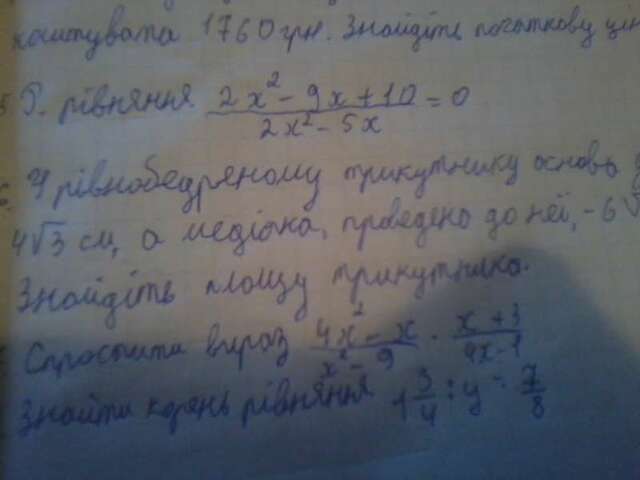 коштувата 1760 грн. Знайдіть початкову цін
5. Р. рівняння (2x² - 9x + 10)/(2x² - 5x) = 0
6. У рівнобедреному трикутнику основа
4√3 см, а медіана, проведено до неї, - 6√
Знайдіть площу трикутника.
Спростити вираз (4x² - x)/(x² - 9) · (x + 3)/(4x - 1)
Знайти корень рівняння 1 3/4 : y = 7/8